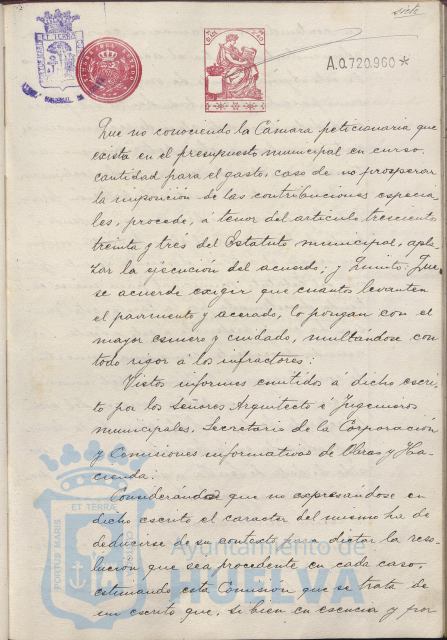 siete
A.0.720.960*
Que no conociendo la Cámara peticionaria que
exista en el presupuesto municipal en curso
cantidad para el gasto, caso de no prosperar
la imposición de las contribuciones especia-
les, procede, á tenor del articulo trescientos
treinta y tres del Estatuto municipal, apla-
zar la ejecución del acuerdo; y Quinto: Que
se acuerde exigir que cuantos levanten
el pavimento y acerado, lo pongan con el
mayor esmero y cuidado, multándose con
todo rigor á los infractores:
Vistos informes emitidos á dicho escri-
to por los Señores Arquitecto é Ingenieros
municipales, Secretario de la Corporación
y Comisiones informativas de Obras y Ha-
cienda:
Considerando que no expresandose en
dicho escrito el caracter del mismo ha de
deducirse de su contexto para dictar la reso-
lución que sea procedente en cada caso,
estimando esta Comisión que se trata de
un escrito que, si bien en esencia y por
PORTUS MARIS ET TERRÆ
Ayuntamiento de
HUELVA